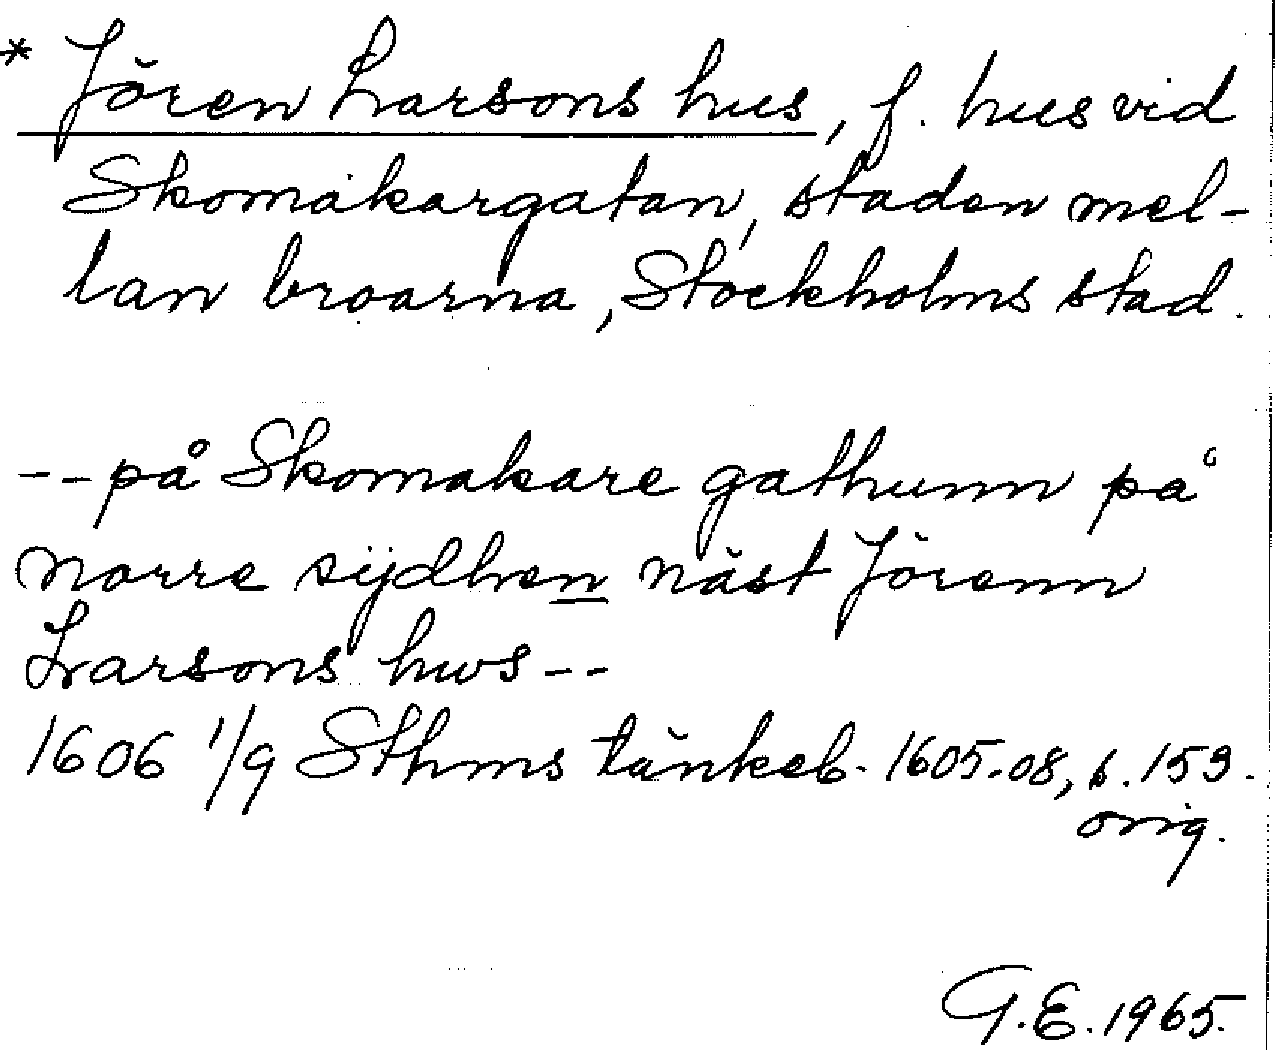 * Jören Larsons hus, f. hus vid
Skomakargatan, staden mel-
lan broarna, Stockholms stad.
-- på Skomakare gathunn på
norre sijdhen näst Jörenn
Larsons hws --
1606 1/9 Sthms tänkeb. 1605-08, s. 153.
orig.
G.E. 1965.